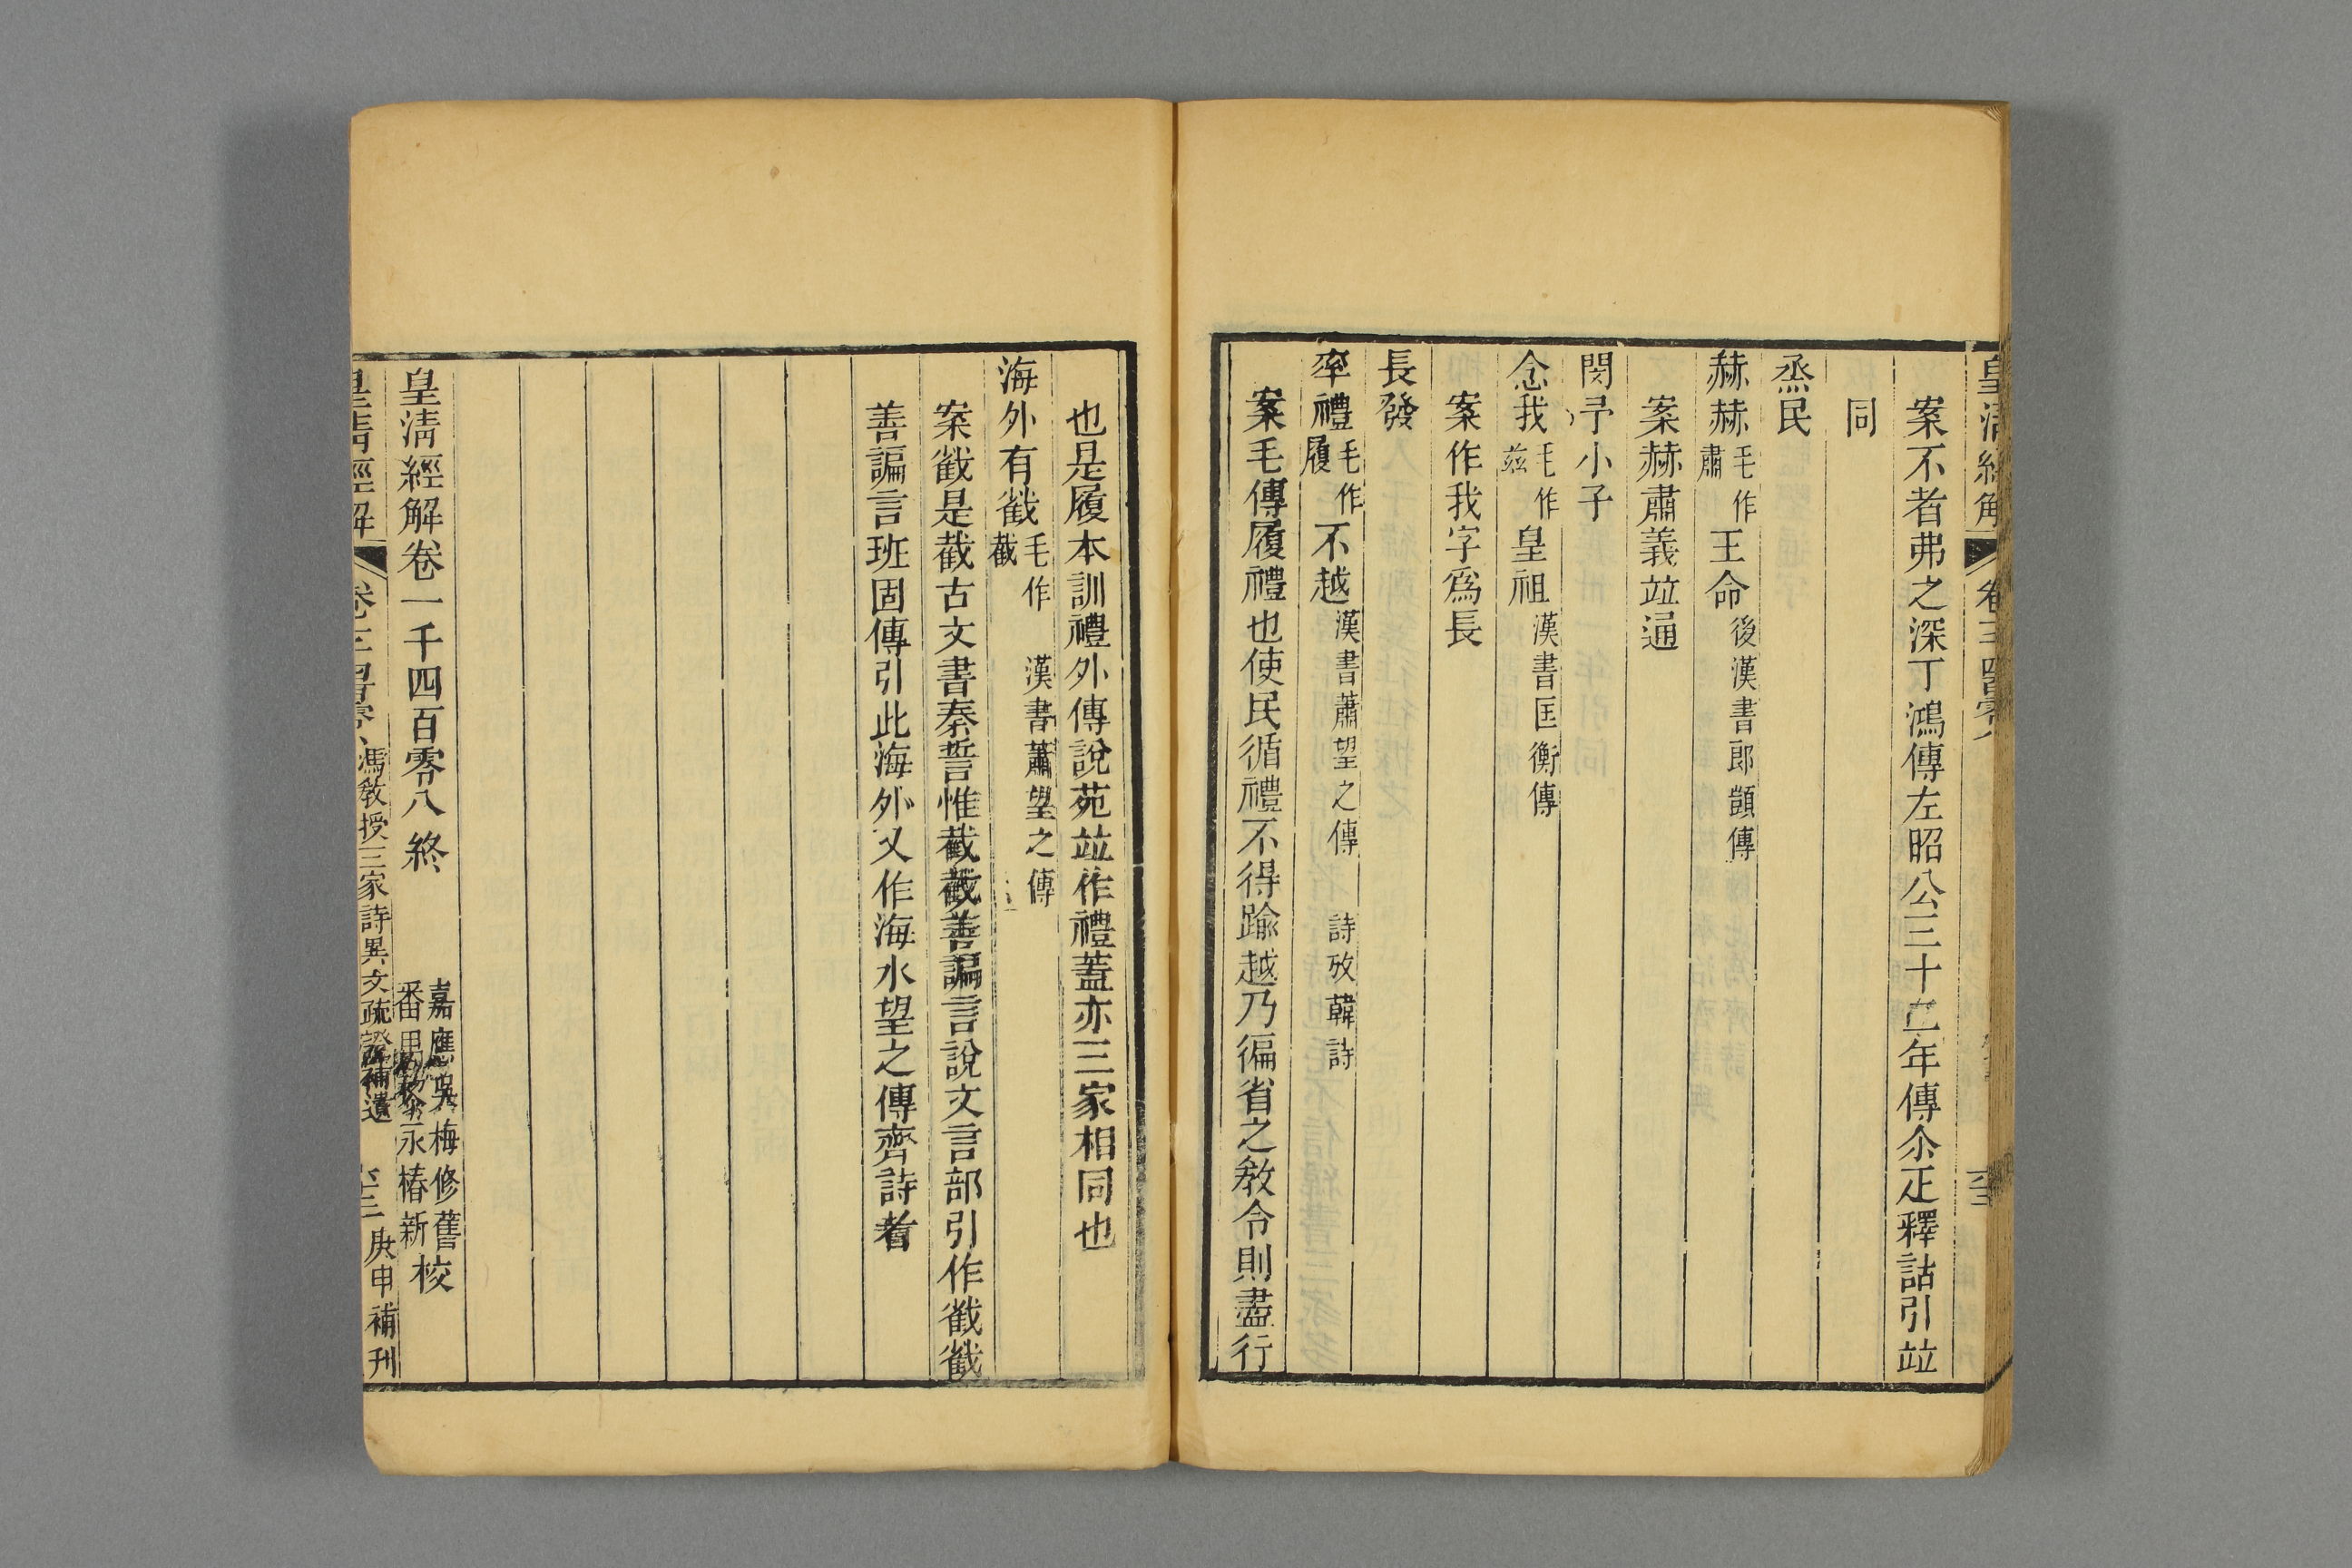 皇清經解 卷一千四百零八
案不者弗之深丁鴻傳左昭公三十二年傳尒疋釋詁引竝
同
烝民
赫赫毛作肅王命後漢書郎顗傳
案赫肅義竝通
閔予小子
念我毛作茲皇祖漢書匡衡傳
案作我字爲長
長發
率禮毛作履不越漢書蕭望之傳 詩攷韓詩
案毛傳履禮也使民循禮不得踰越乃徧省之敎令則盡行
也是履本訓禮外傳說苑竝作禮蓋亦三家相同也
海外有㦰毛作截 漢書蕭望之傳
案㦰是截古文書秦誓惟截截善諞言說文言部引作㦰㦰
善諞言班固傳引此海外又作海水望之傳齊詩者
皇清經解卷一千四百零八終 嘉應吳梅修舊校
番禺 永椿新校
皇清經解 卷一千四百零八 馮敎授三家詩異文疏證補遺 庚申補刊